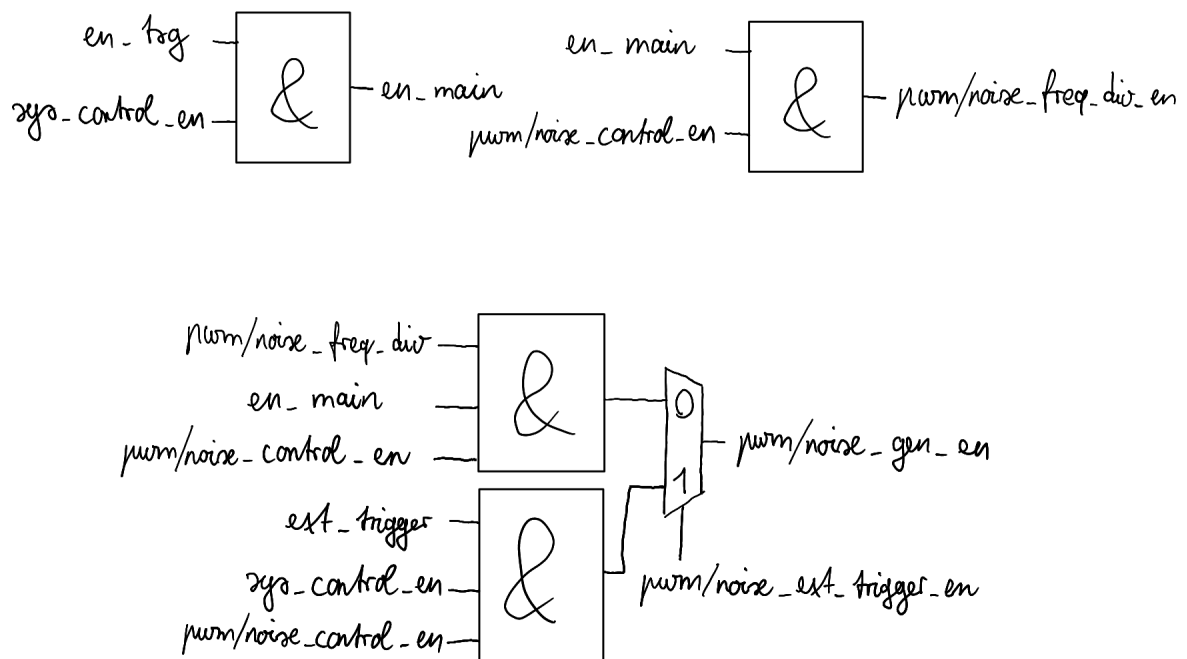 en_trg
sys_control_en
&
en_main
en_main
pwm/noise_control_en
&
pwm/noise_freq_div_en
pwm/noise_freq_div
en_main
pwm/noise_control_en
&
0
1
pwm/noise_gen_en
ext_trigger
sys_control_en
pwm/noise_control_en
&
pwm/noise_ext_trigger_en